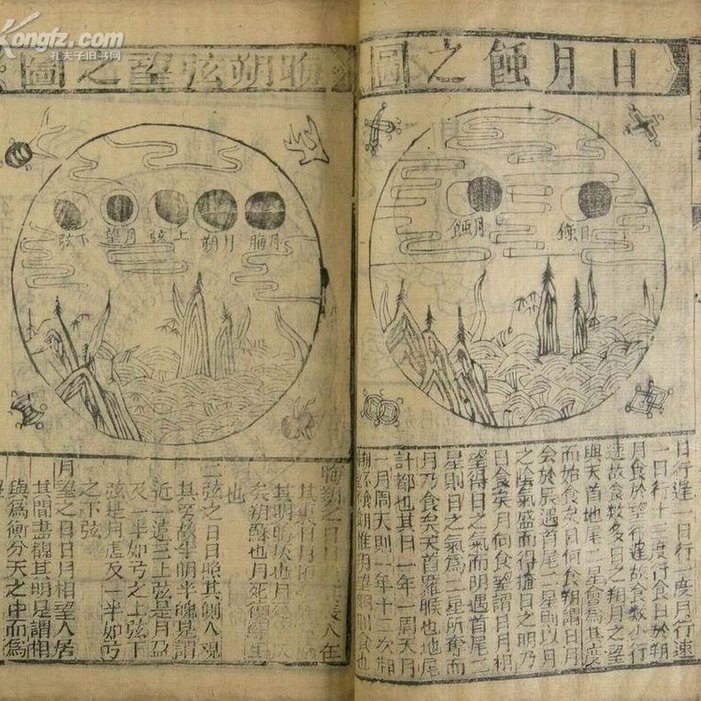 Kongfz.com
孔夫子旧书网
日月蝕之圖
日蝕
月蝕
日行遲一日行一度月行速
一日行十三度行食日於朔
月食於望行遲故食數少行
速故食數多日之朔月之望
與天首地尾二星會為其
而始食矣日何食朔謂日月
會於辰遇首尾二星則以月
之陰氣盛而得掩日之明乃
日食矣月何食望謂日月相
望得日之氣而明遇首尾二
星則日之氣為二星所奪而
月乃食矣天首羅睺也地尾
計都也其日一年一周天月
一月周天則一年十二次相
晦朔弦望之圖
月晦
月朔
上弦
月望
下弦
其明
矣朔蘇也月死得
也
二弦之日日照其側人觀
其旁故半明半魄是謂
近一遠三上弦是月盈
及一半如弓之上弦下
弦是月虧及一半如弓
之下弦
月望之日日月相望人居
其間盡覩其明是謂相
與為衡分天之中而為